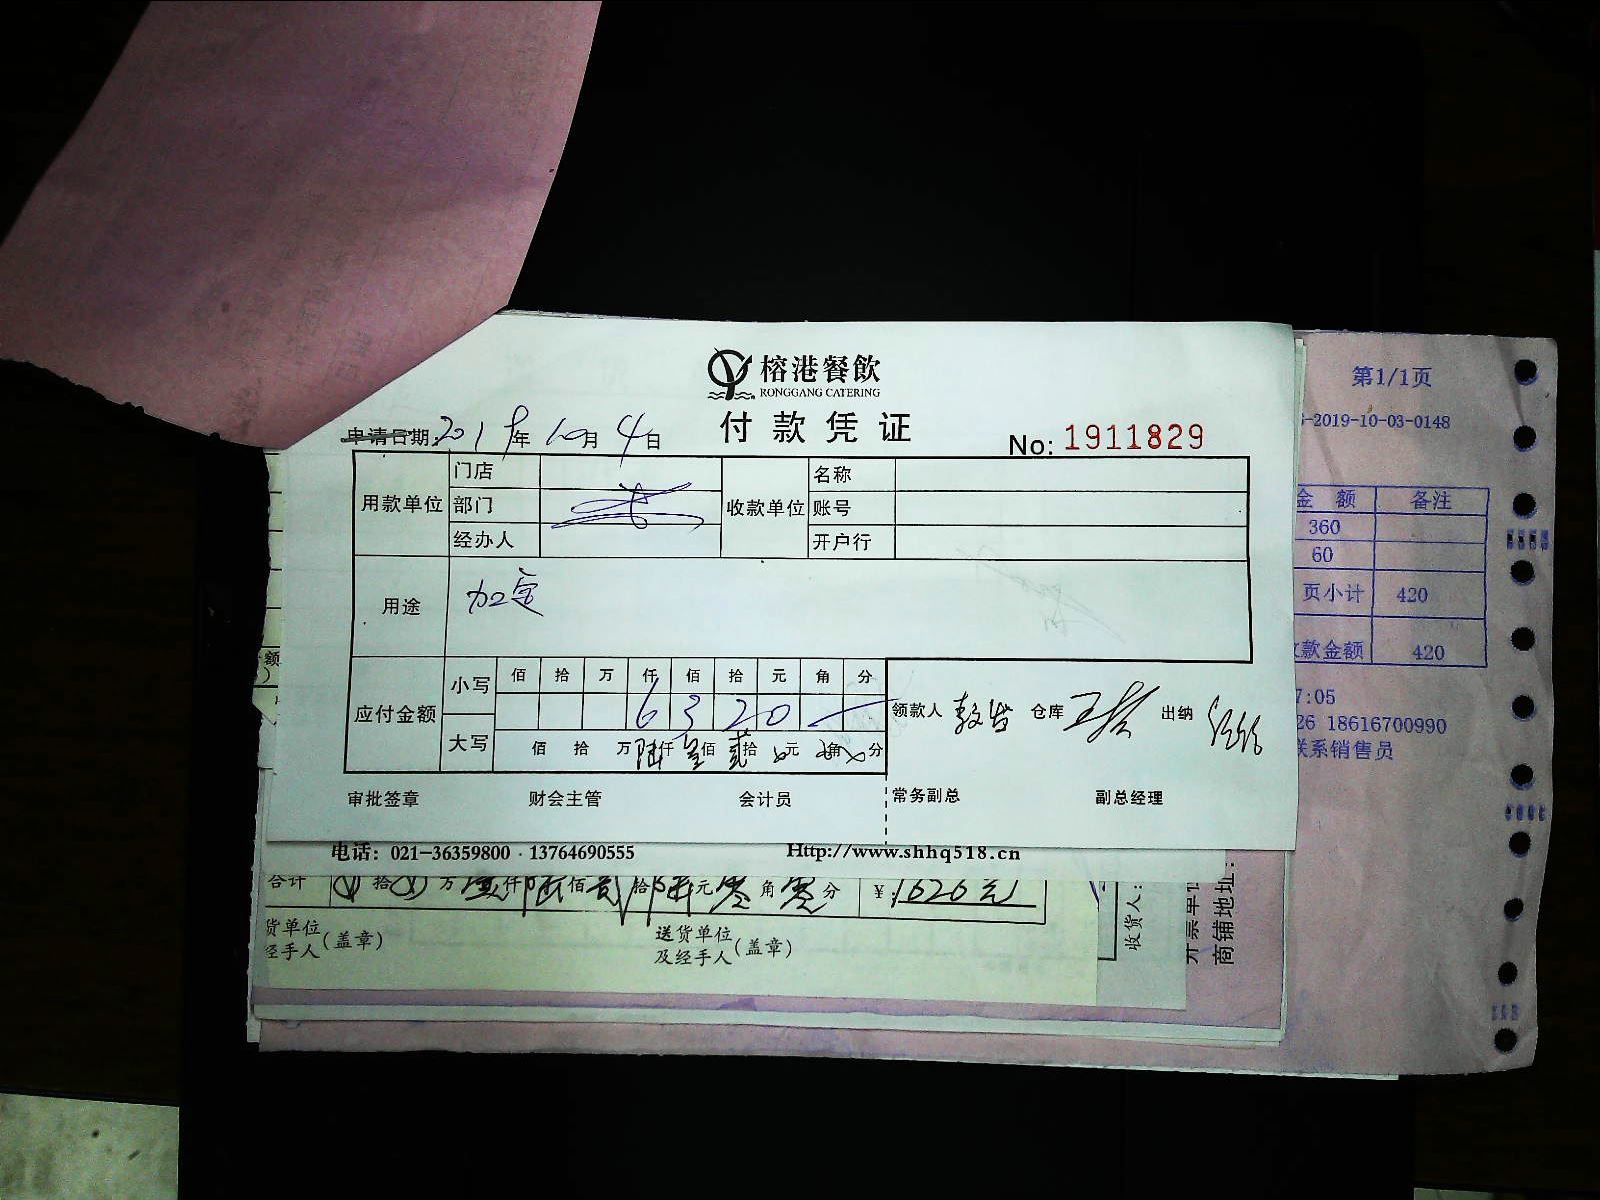 榕港餐飲
RONGGANG CATERING
付款凭证
申请日期: 2019年10月4日
No: 1911829
用款单位 门店 收款单位 名称
部门 账号
经办人 开户行
用途
应付金额 小写 佰 拾 万 仟 佰 拾 元 角 分
6 3 2 0
大写 佰 拾 万陆仟叁佰贰拾 元 角 分
领款人 仓库 出纳
审批签章 财会主管 会计员 常务副总 副总经理
电话: 021-36359800 · 13764690555 Http://www.shhq518.cn
合计 拾 万壹仟陆佰贰拾陆元零角零分 ¥:1626元
货单位
经手人(盖章)
送货单位
及经手人(盖章)
收货人:
商铺地址:
额
第1/1页
-2019-10-03-0148
金 额 备注
360
60
页小计 420
款金额 420
7:05
26 18616700990
联系销售员